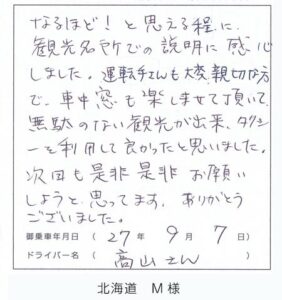 なるほど！と思える程に、
観光名所での説明に感心
しました。運転手さんも大変、親切な方
で、車中窓も楽しませて頂いて
無駄のない観光が出来、タクシ
ーを利用して良かったと思いました。
次回も是非是非お願い
しようと思ってます。ありがとう
ございました。
御乗車年月日（27年9月7日）
ドライバー名（高山さん）
北海道 M様